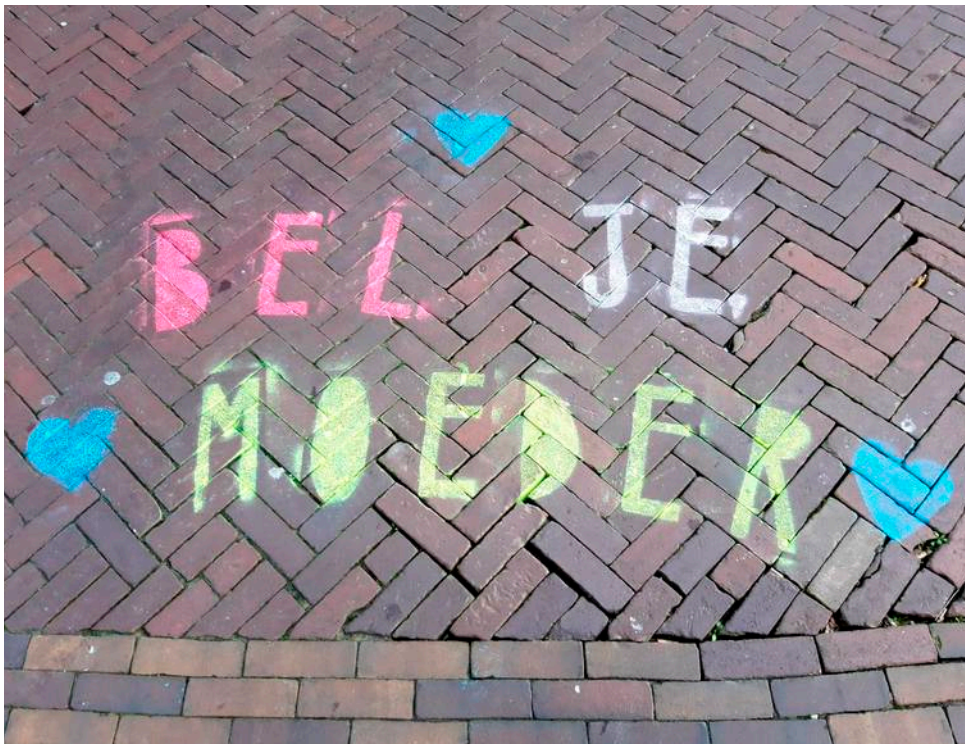 BEL JE
MOEDER